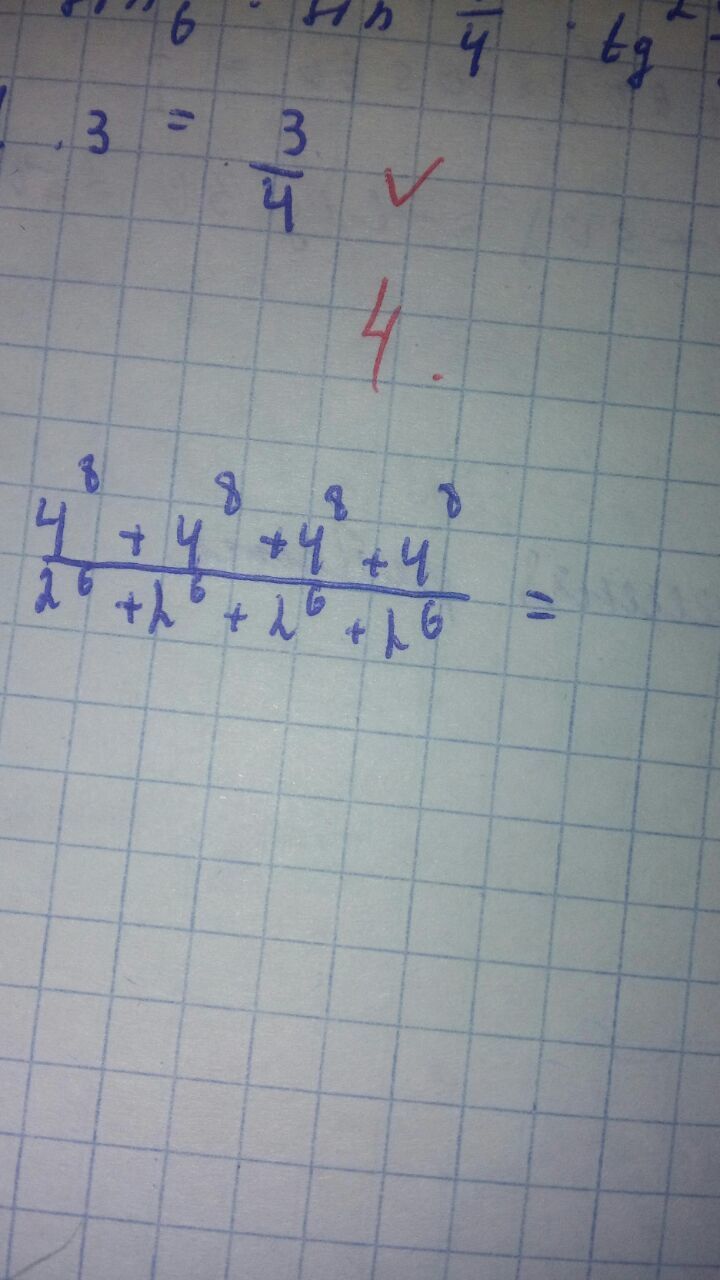 6 · sin 4 · tg²
· 3 = 3/4 ✓
4.
4⁸ + 4⁸ + 4⁸ + 4⁸
2⁶ + 2⁶ + 2⁶ + 2⁶ =